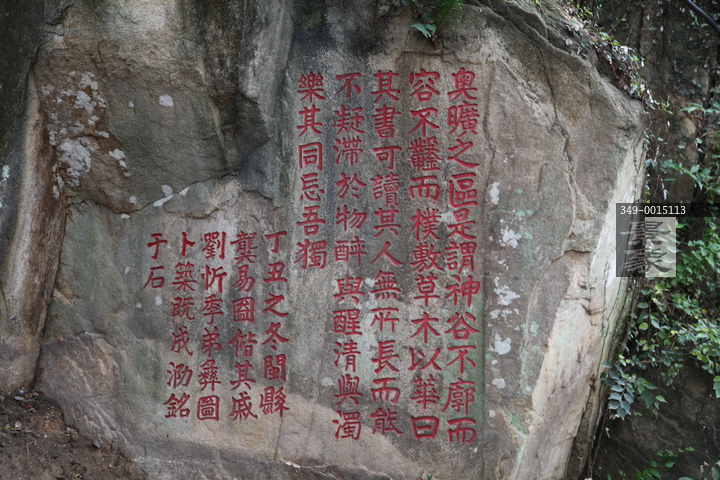 奧曠之區是謂神谷不廓而
容不而樸敷草木以華曰
其書可讀其人無所長而能
不凝滯於物醉與醒清與濁
樂其同忘吾獨
丁丑之冬閩縣
龔易圖偕其戚
劉忻季弟彝圖
卜築既成泐銘
于石
349-0015113